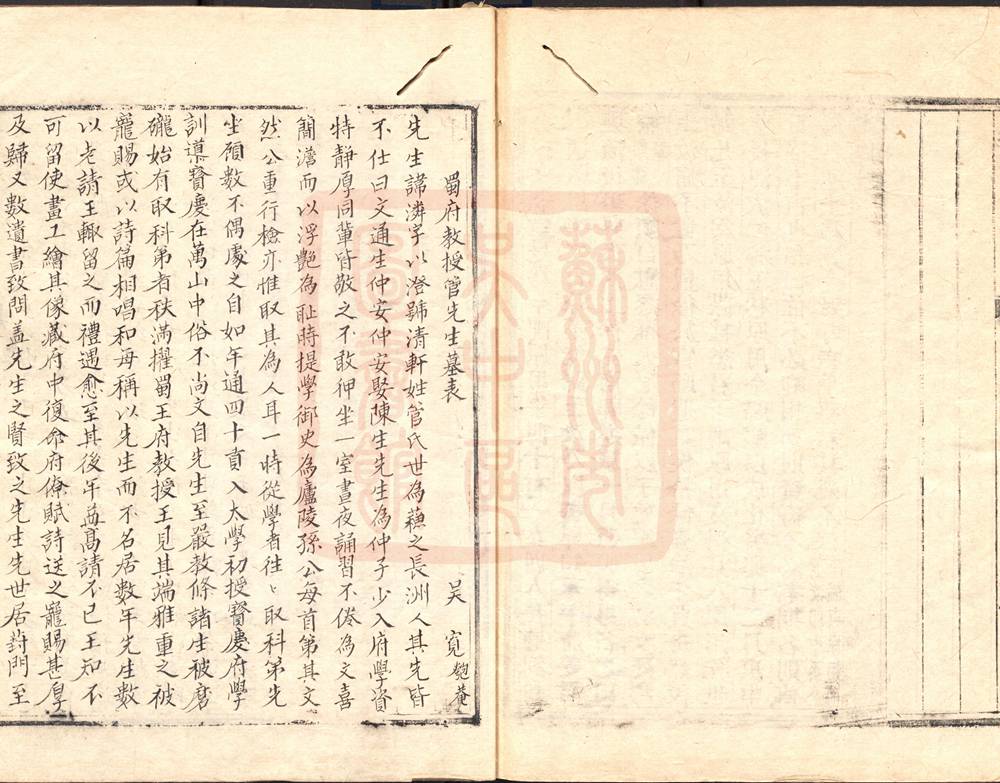 蜀府教授管先生墓表
吴 寬 匏菴
先生諱潾字以澄號清軒姓管氏世為蘓之長洲人其先皆
不仕曰文通生仲安仲安娶陳生先生為仲子少入府學資
特静厚同輩皆敬之不敢狎坐一室晝夜誦習不倦為文喜
簡澹而以浮艷為耻時提學御史為廬陵孫公每首第其文
然公重行檢亦惟取其為人耳一時從學者往〻取科第先
生顧數不偶處之自如年逋四十貢入太學初授寳慶府學
訓導寳慶在萬山中俗不尚文自先生至嚴教條諸生被磨
礲始有取科第者秩滿擢蜀王府教授王見其端雅重之被
寵賜或以詩篇相唱和每稱以先生而不名居數年先生數
以老請王輙留之而禮遇愈至其後年益髙請不已王知不
可留使畫工繪其像藏府中復命府僚賦詩送之寵賜甚厚
及歸又數遺書致問盖先生之賢致之先生先世居葑門至
蘇州市
吴中區
圖書館